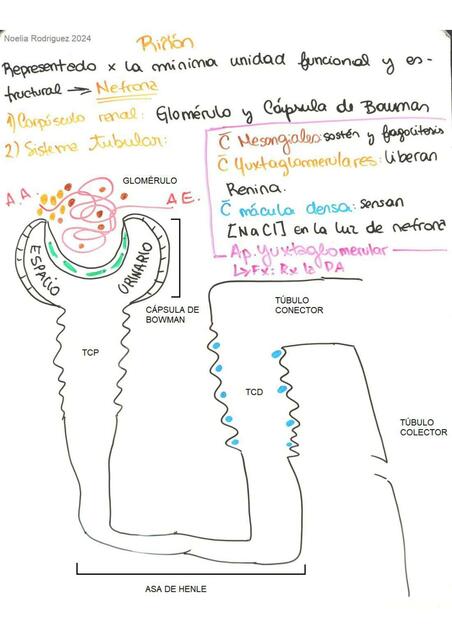 Noelia Rodriguez 2024
Riñón
Representado x la mínima unidad funcional y es-
tructural → Nefrona
1) Corpúsculo renal: Glomérulo y Cápsula de Bowman
2) Sistema tubular:
C̄ Mesangiales: sostén y fagocitosis
C̄ Yuxtaglomerulares: liberan
Renina.
C̄ mácula densa: sensan
[NaCl] en la luz de nefrona
Ap. Yuxtaglomerular
↳ Fx: Rx la PA
GLOMÉRULO
A.A.
A E.
ESPACIO URINARIO
CÁPSULA DE
BOWMAN
TÚBULO
CONECTOR
TCP
TCD
TÚBULO
COLECTOR
ASA DE HENLE